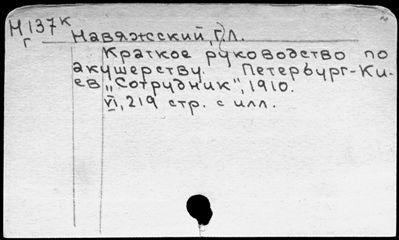 М137к
г
Навяжский, Г.Л.
Краткое руководство по
акушерству. Петербург-Ки-
ев, „Сотрудник", 1910.
VI, 219 стр. с илл.